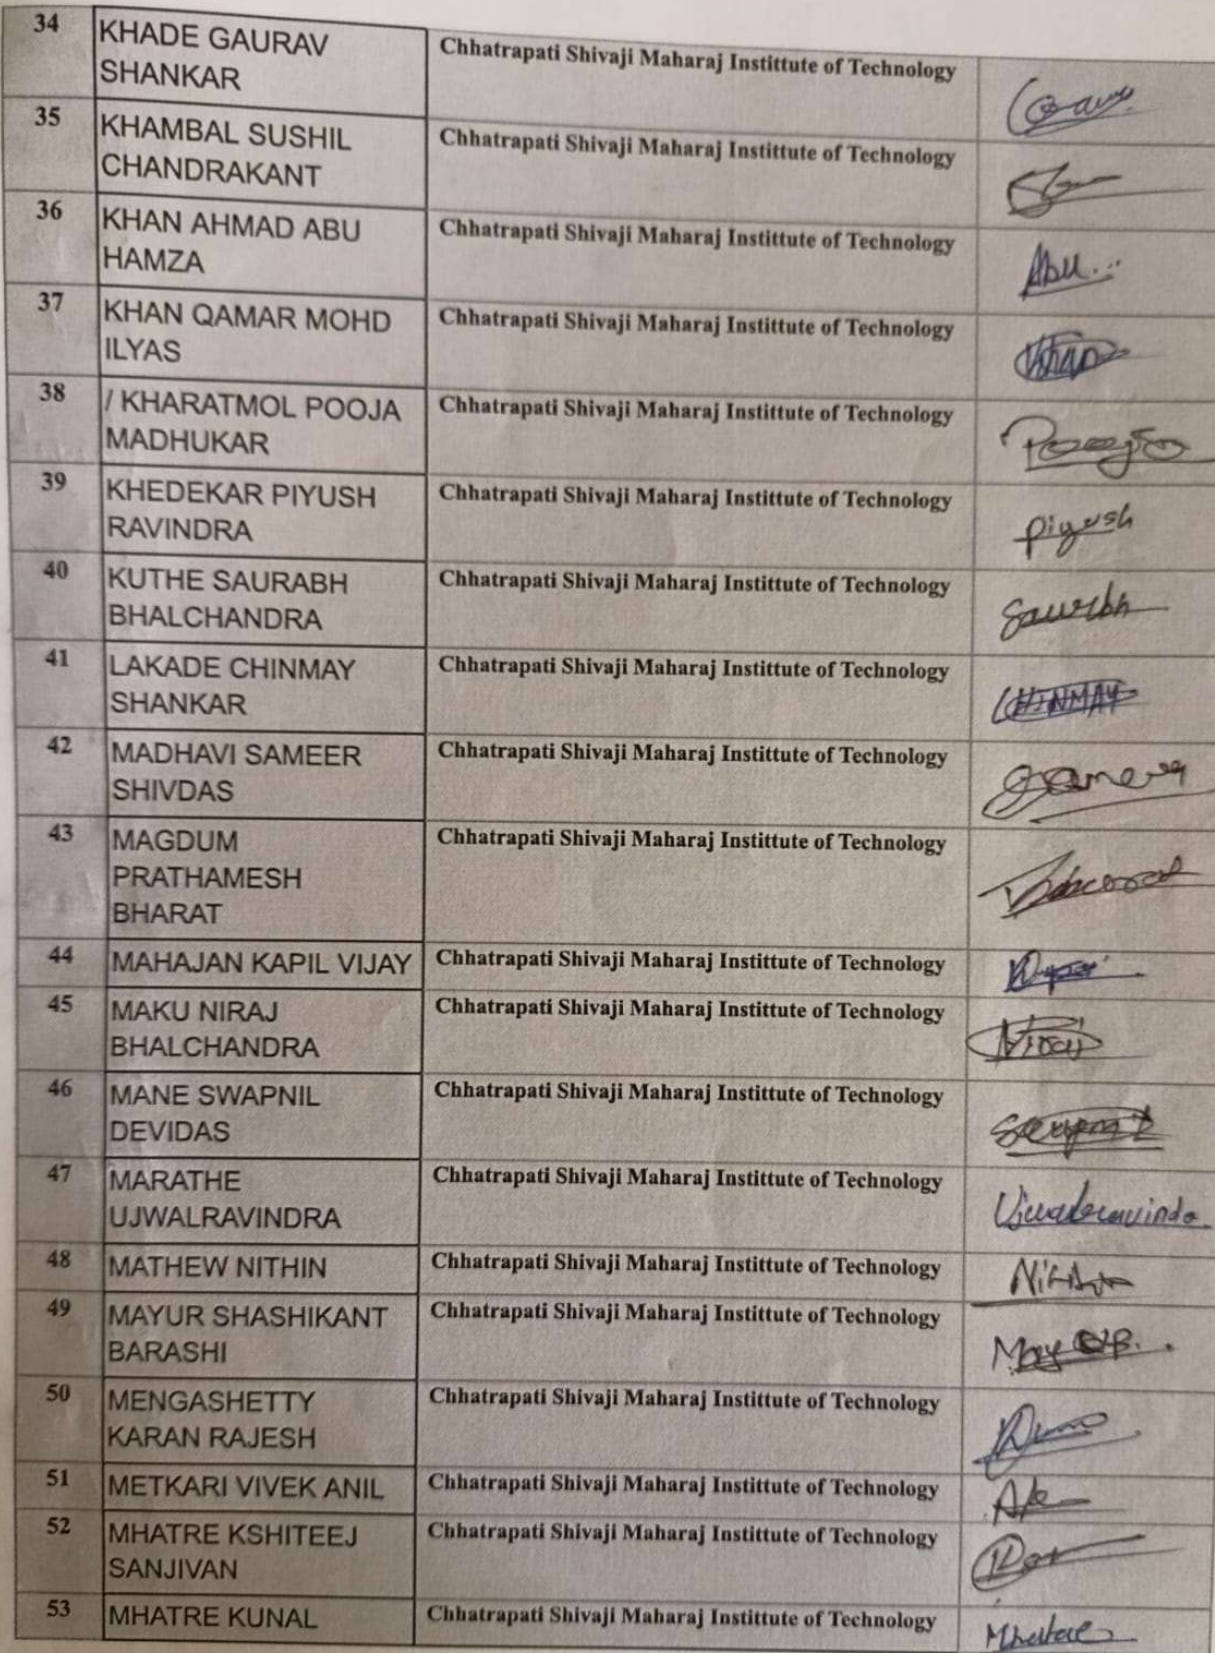 34 KHADE GAURAV Chhatrapati Shivaji Maharaj Instittute of Technology
SHANKAR
35 KHAMBAL SUSHIL Chhatrapati Shivaji Maharaj Instittute of Technology
CHANDRAKANT
36 KHAN AHMAD ABU Chhatrapati Shivaji Maharaj Instittute of Technology
HAMZA Abu...
37 KHAN QAMAR MOHD Chhatrapati Shivaji Maharaj Instittute of Technology
ILYAS Khan
38 / KHARATMOL POOJA Chhatrapati Shivaji Maharaj Instittute of Technology
MADHUKAR Pooja
39 KHEDEKAR PIYUSH Chhatrapati Shivaji Maharaj Instittute of Technology
RAVINDRA Piyush
40 KUTHE SAURABH Chhatrapati Shivaji Maharaj Instittute of Technology
BHALCHANDRA
41 LAKADE CHINMAY Chhatrapati Shivaji Maharaj Instittute of Technology
SHANKAR CHINMAY
42 MADHAVI SAMEER Chhatrapati Shivaji Maharaj Instittute of Technology
SHIVDAS
43 MAGDUM Chhatrapati Shivaji Maharaj Instittute of Technology
PRATHAMESH
BHARAT
44 MAHAJAN KAPIL VIJAY Chhatrapati Shivaji Maharaj Instittute of Technology
45 MAKU NIRAJ Chhatrapati Shivaji Maharaj Instittute of Technology
BHALCHANDRA Niraj
46 MANE SWAPNIL Chhatrapati Shivaji Maharaj Instittute of Technology
DEVIDAS
47 MARATHE Chhatrapati Shivaji Maharaj Instittute of Technology
UJWALRAVINDRA
48 MATHEW NITHIN Chhatrapati Shivaji Maharaj Instittute of Technology Nithin
49 MAYUR SHASHIKANT Chhatrapati Shivaji Maharaj Instittute of Technology
BARASHI
50 MENGASHETTY Chhatrapati Shivaji Maharaj Instittute of Technology
KARAN RAJESH
51 METKARI VIVEK ANIL Chhatrapati Shivaji Maharaj Instittute of Technology
52 MHATRE KSHITEEJ Chhatrapati Shivaji Maharaj Instittute of Technology
SANJIVAN
53 MHATRE KUNAL Chhatrapati Shivaji Maharaj Instittute of Technology